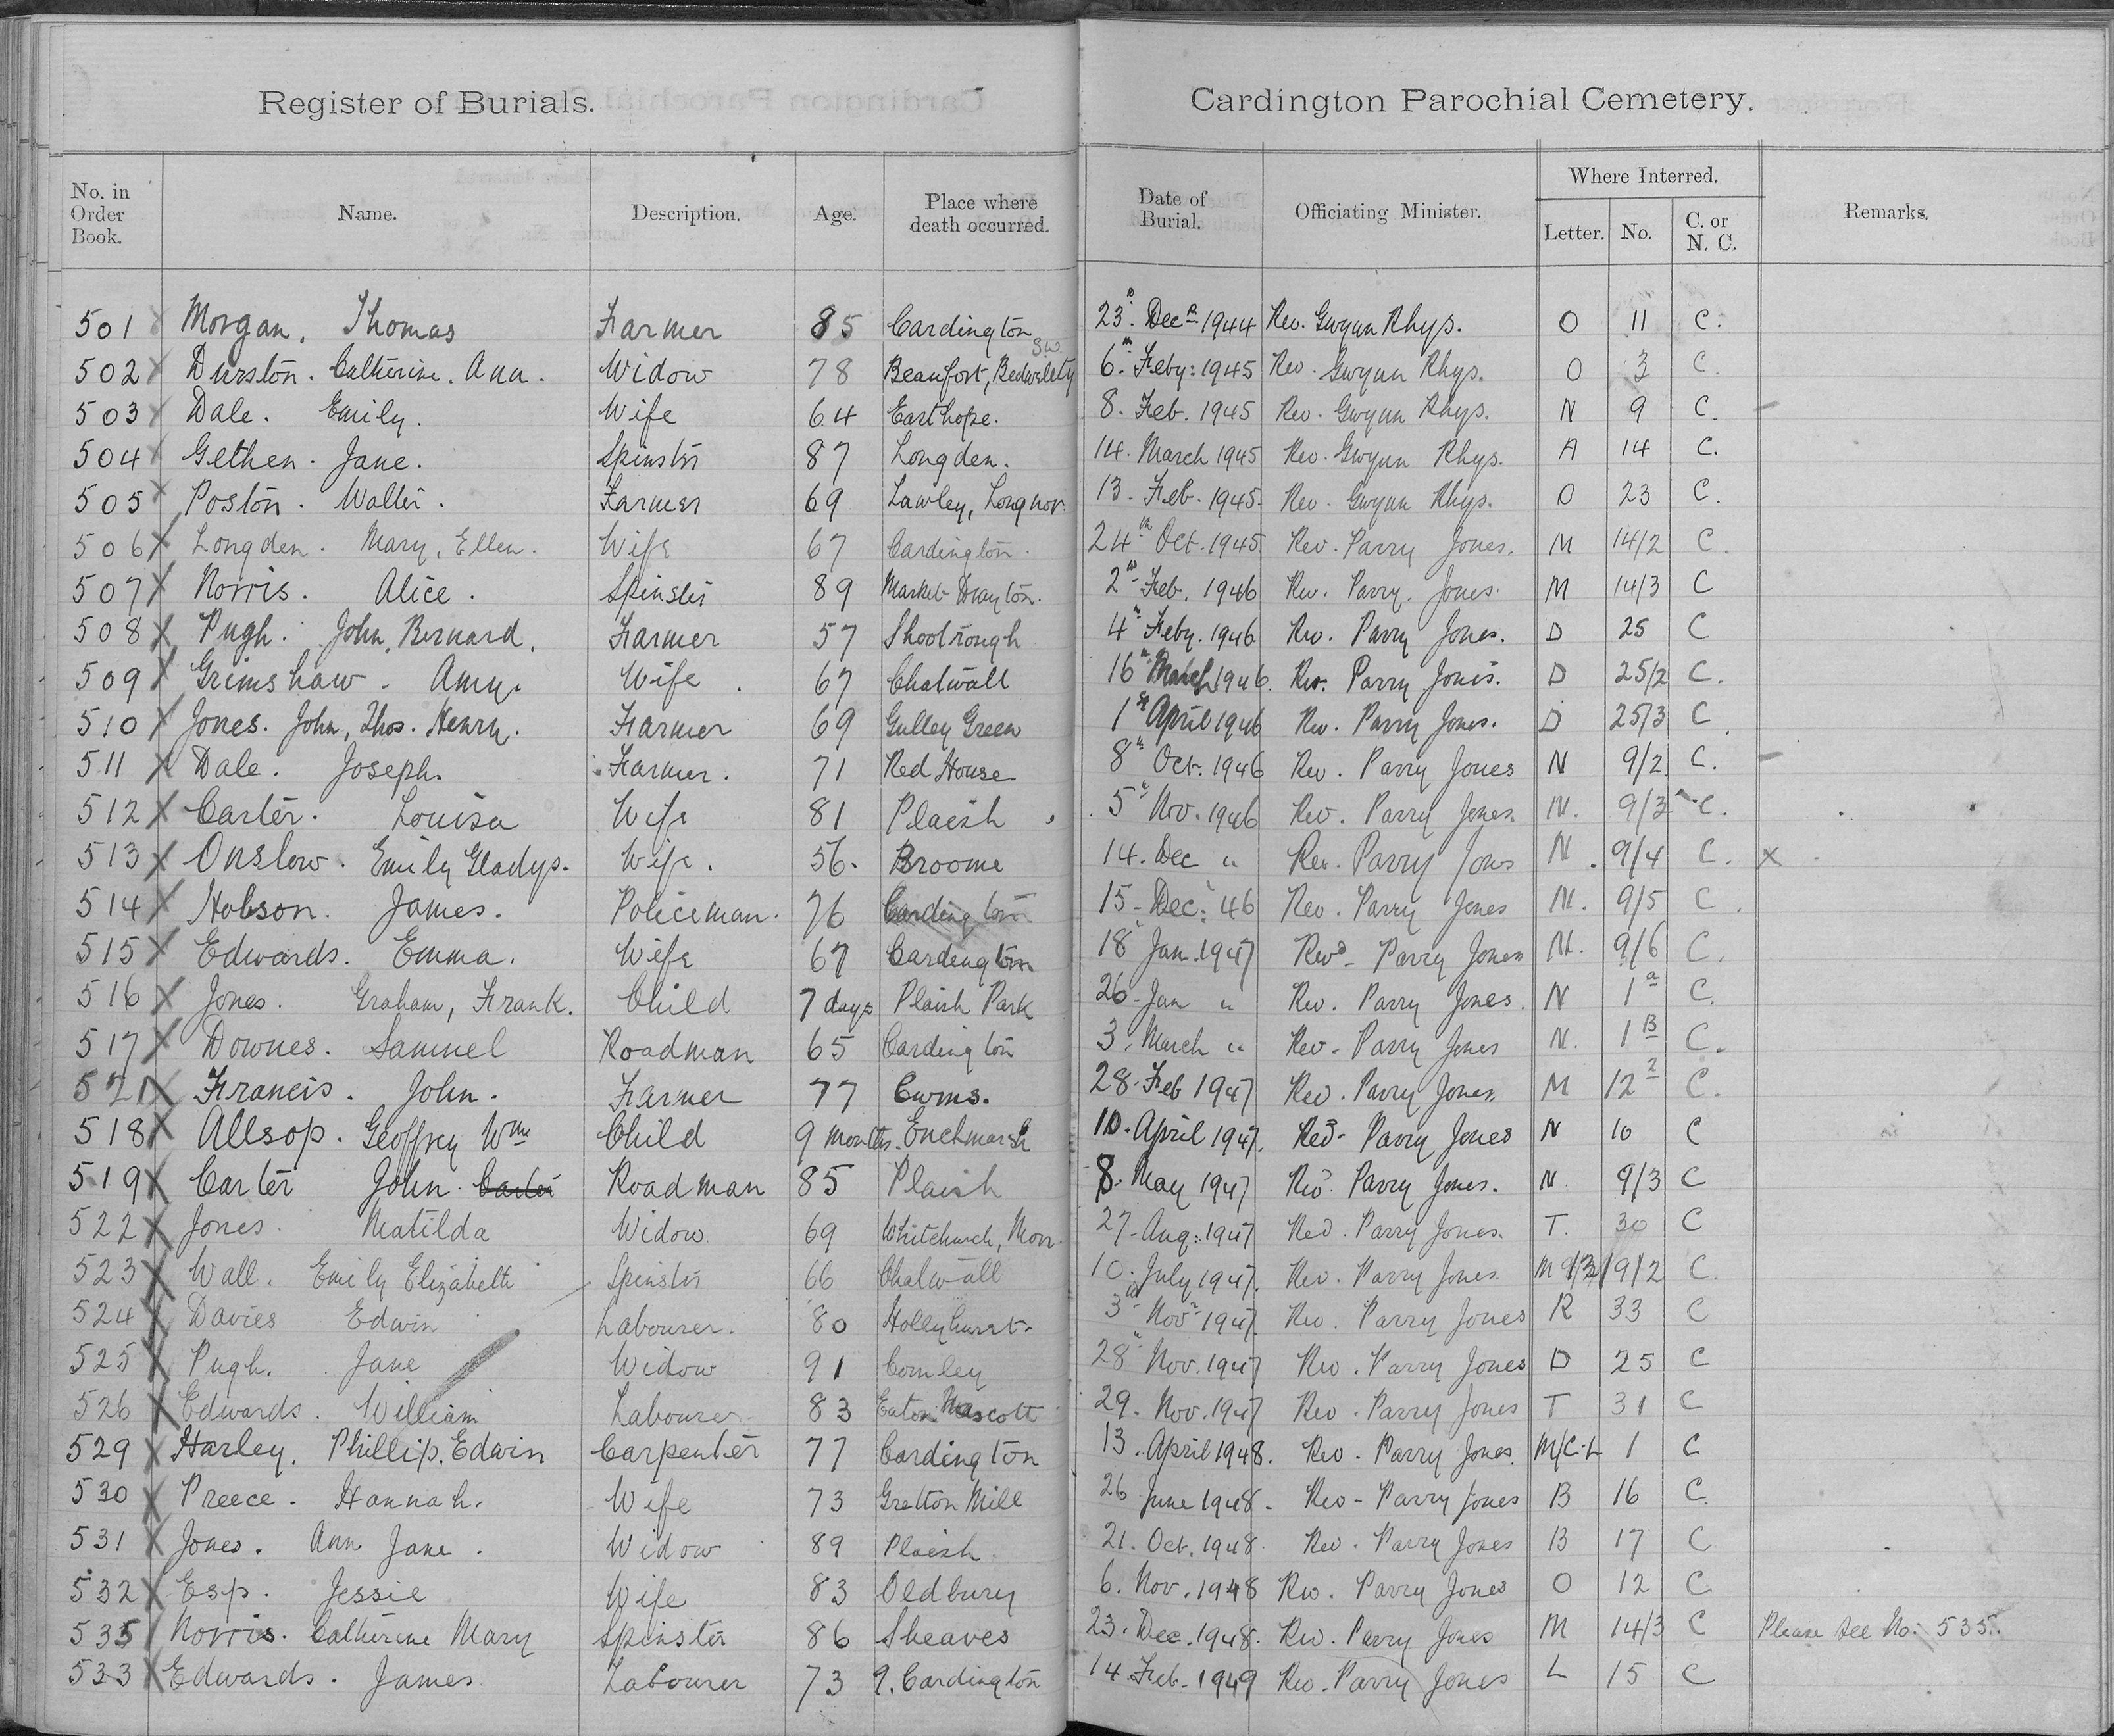 Register of Burials. Cardington Parochial Cemetery.
No. in Order Book. Name. Description. Age. Place where death occurred. Date of Burial. Officiating Minister. Where Interred. Letter. No. C. or N. C. Remarks.
501 X Morgan, Thomas Farmer 85 Cardington 23. Decr 1944 Rev. Gwynn Rhys. O 11 C.
502 X Durston. Catherine. Ann. Widow 78 Beaufort, Bedwelty 6th Feby: 1945 Rev. Gwynn Rhys. O 3 C.
503 X Dale. Emily. Wife 64 Easthope. 8. Feb. 1945 Rev. Gwynn Rhys. N 9 C. –
504 X Gethen. Jane. Spinster 87 Longden. 14. March 1945 Rev. Gwynn Rhys. A 14 C.
505 X Poston. Walter. Farmer 69 Lawley, Longnor. 13. Feb. 1945. Rev. Gwynn Rhys. O 23 C.
506 X Longden. Mary, Ellen. Wife 67 Cardington. 24th Oct. 1945 Rev. Parry Jones. M 14/2 C.
507 X Norris. Alice. Spinster 89 Market Drayton. 2nd Feb. 1946 Rev. Parry. Jones. M 14/3 C
508 X Pugh. John, Bernard. Farmer 57 Shootrough 4th Feby. 1946 Rev. Parry Jones. D 25 C
509 X Grimshaw. Amy. Wife 67 Chatwall 16th March 1946. Rev. Parry Jones. D 25/2 C.
510 X Jones. John, Thos. Henry. Farmer 69 Gulley Green 1st April 1946 Rev. Parry Jones. D 25/3 C
511 X Dale. Joseph. Farmer. 71 Red House 8th Oct. 1946 Rev. Parry Jones N 9/2 C. –
512 X Carter. Louisa Wife 81 Plaish 5th Nov. 1946 Rev. Parry Jones. N. 9/3 C.
513 X Onslow. Emily Gladys. Wife. 56. Broome 14. Dec " Rev. Parry Jones N. 9/4 C. X
514 X Hobson. James. Policeman. 76 Cardington 15 - Dec: 46 Rev. Parry Jones N. 9/5 C.
515 X Edwards. Emma. Wife 67 Cardington 18 Jan. 1947 Revd - Parry Jones N. 9/6 C.
516 X Jones. Graham, Frank. Child 7 days Plaish Park 26 - Jan " Rev. Parry Jones. N 1a C.
517 X Downes. Samuel Roadman 65 Cardington 3. March " Rev. Parry Jones N. 1B C.
521 X Francis. John. Farmer 77 Cwms. 28. Feb 1947 Rev. Parry Jones. M 12 2 C.
518 X Allsop. Geoffrey Wm Child 9 months. Enchmarsh 10. April 1947. Revd - Parry Jones N 10 C
519 X Carter John Carter Roadman 85 Plaish 8. May 1947 Revd. Parry Jones. N 9/3 C
522 X Jones. Matilda Widow 69 Whitchurch, Mon. 27. Aug: 1947 Rev. Parry Jones. T. 30 C
523 X Wall. Emily Elizabeth Spinster 66 Chatwall 10. July 1947. Rev. Parry Jones. M 9/2 C.
524 X Davies Edwin Labourer. 80 Hollyhurst. 3rd Novr 1947. Rev. Parry Jones R 33 C
525 X Pugh. Jane Widow 91 Comley 28th Nov. 1947 Rev. Parry Jones D 25 C
526 X Edwards. William Labourer 83 Eaton Mascott 29. Nov. 1947 Rev. Parry Jones T 31 C
529 X Harley. Phillip. Edwin Carpenter 77 Cardington 13. April 1948. Rev. Parry Jones. 1 C
530 X Preece. Hannah. Wife 73 Gretton Mill 26 June 1948. Rev - Parry Jones B 16 C.
531 X Jones. Ann Jane. Widow 89 Plaish. 21. Oct. 1948. Rev. Parry Jones B 17 C
532 X Esp. Jessie Wife 83 Oldbury 6. Nov. 1948 Rev. Parry Jones O 12 C
535 / Norris. Catherine Mary Spinster 86 Sheaves 23. Dec. 1948. Rev. Parry Jones M 14/3 C Please see No: 535.
533 X Edwards. James. Labourer 73 9. Cardington 14. Feb. 1949 Rev. Parry Jones L 15 C